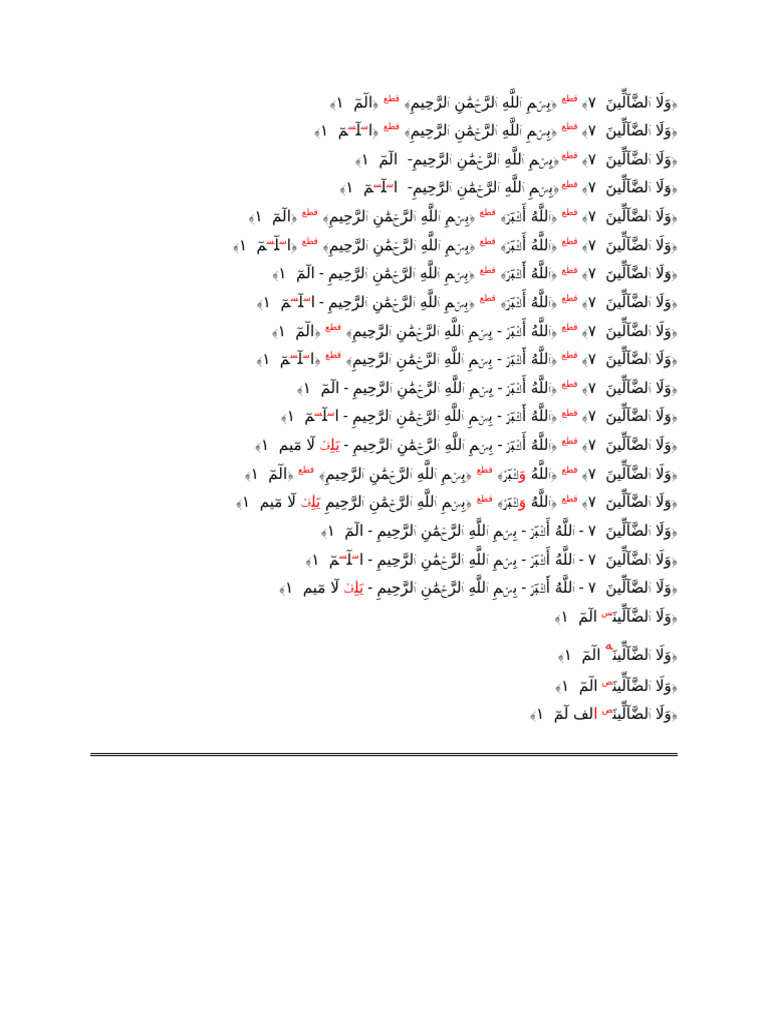 ﴿وَلَا ٱلضَّآلِّينَ ٧﴾ قطع ﴿بِسۡمِ ٱللَّهِ ٱلرَّحۡمَٰنِ ٱلرَّحِيمِ﴾ قطع ﴿الٓمٓ ١﴾
﴿وَلَا ٱلضَّآلِّينَ ٧﴾ قطع ﴿بِسۡمِ ٱللَّهِ ٱلرَّحۡمَٰنِ ٱلرَّحِيمِ﴾ قطع ﴿اسآسمٓ ١﴾
﴿وَلَا ٱلضَّآلِّينَ ٧﴾ قطع ﴿بِسۡمِ ٱللَّهِ ٱلرَّحۡمَٰنِ ٱلرَّحِيمِ- الٓمٓ ١﴾
﴿وَلَا ٱلضَّآلِّينَ ٧﴾ قطع ﴿بِسۡمِ ٱللَّهِ ٱلرَّحۡمَٰنِ ٱلرَّحِيمِ- اسآسمٓ ١﴾
﴿وَلَا ٱلضَّآلِّينَ ٧﴾ قطع ﴿ٱللَّهُ أَكۡبَرُ﴾ قطع ﴿بِسۡمِ ٱللَّهِ ٱلرَّحۡمَٰنِ ٱلرَّحِيمِ﴾ قطع ﴿الٓمٓ ١﴾
﴿وَلَا ٱلضَّآلِّينَ ٧﴾ قطع ﴿ٱللَّهُ أَكۡبَرُ﴾ قطع ﴿بِسۡمِ ٱللَّهِ ٱلرَّحۡمَٰنِ ٱلرَّحِيمِ﴾ قطع ﴿اسآسمٓ ١﴾
﴿وَلَا ٱلضَّآلِّينَ ٧﴾ قطع ﴿ٱللَّهُ أَكۡبَرُ﴾ قطع ﴿بِسۡمِ ٱللَّهِ ٱلرَّحۡمَٰنِ ٱلرَّحِيمِ - الٓمٓ ١﴾
﴿وَلَا ٱلضَّآلِّينَ ٧﴾ قطع ﴿ٱللَّهُ أَكۡبَرُ﴾ قطع ﴿بِسۡمِ ٱللَّهِ ٱلرَّحۡمَٰنِ ٱلرَّحِيمِ - اسآسمٓ ١﴾
﴿وَلَا ٱلضَّآلِّينَ ٧﴾ قطع ﴿ٱللَّهُ أَكۡبَرُ - بِسۡمِ ٱللَّهِ ٱلرَّحۡمَٰنِ ٱلرَّحِيمِ﴾ قطع ﴿الٓمٓ ١﴾
﴿وَلَا ٱلضَّآلِّينَ ٧﴾ قطع ﴿ٱللَّهُ أَكۡبَرُ - بِسۡمِ ٱللَّهِ ٱلرَّحۡمَٰنِ ٱلرَّحِيمِ﴾ قطع ﴿اسآسمٓ ١﴾
﴿وَلَا ٱلضَّآلِّينَ ٧﴾ قطع ﴿ٱللَّهُ أَكۡبَرُ - بِسۡمِ ٱللَّهِ ٱلرَّحۡمَٰنِ ٱلرَّحِيمِ - الٓمٓ ١﴾
﴿وَلَا ٱلضَّآلِّينَ ٧﴾ قطع ﴿ٱللَّهُ أَكۡبَرُ - بِسۡمِ ٱللَّهِ ٱلرَّحۡمَٰنِ ٱلرَّحِيمِ - اسآسمٓ ١﴾
﴿وَلَا ٱلضَّآلِّينَ ٧﴾ قطع ﴿ٱللَّهُ أَكۡبَرُ - بِسۡمِ ٱللَّهِ ٱلرَّحۡمَٰنِ ٱلرَّحِيمِ - يَلِفۡ لَآ مِّيم ١﴾
﴿وَلَا ٱلضَّآلِّينَ ٧﴾ قطع ﴿ٱللَّهُ وَكۡبَرُ﴾ قطع ﴿بِسۡمِ ٱللَّهِ ٱلرَّحۡمَٰنِ ٱلرَّحِيمِ﴾ قطع ﴿الٓمٓ ١﴾
﴿وَلَا ٱلضَّآلِّينَ ٧﴾ قطع ﴿ٱللَّهُ وَكۡبَرُ﴾ قطع ﴿بِسۡمِ ٱللَّهِ ٱلرَّحۡمَٰنِ ٱلرَّحِيمِ يَلِفۡ لَآ مِّيم ١﴾
﴿وَلَا ٱلضَّآلِّينَ ٧ - ٱللَّهُ أَكۡبَرُ - بِسۡمِ ٱللَّهِ ٱلرَّحۡمَٰنِ ٱلرَّحِيمِ - الٓمٓ ١﴾
﴿وَلَا ٱلضَّآلِّينَ ٧ - ٱللَّهُ أَكۡبَرُ - بِسۡمِ ٱللَّهِ ٱلرَّحۡمَٰنِ ٱلرَّحِيمِ - اسآسمٓ ١﴾
﴿وَلَا ٱلضَّآلِّينَ ٧ - ٱللَّهُ أَكۡبَرُ - بِسۡمِ ٱللَّهِ ٱلرَّحۡمَٰنِ ٱلرَّحِيمِ - يَلِفۡ لَآ مِّيم ١﴾
﴿وَلَا ٱلضَّآلِّينَس الٓمٓ ١﴾
﴿وَلَا ٱلضَّآلِّينَه الٓمٓ ١﴾
﴿وَلَا ٱلضَّآلِّينَص الٓمٓ ١﴾
﴿وَلَا ٱلضَّآلِّينَص الف لٓمٓ ١﴾